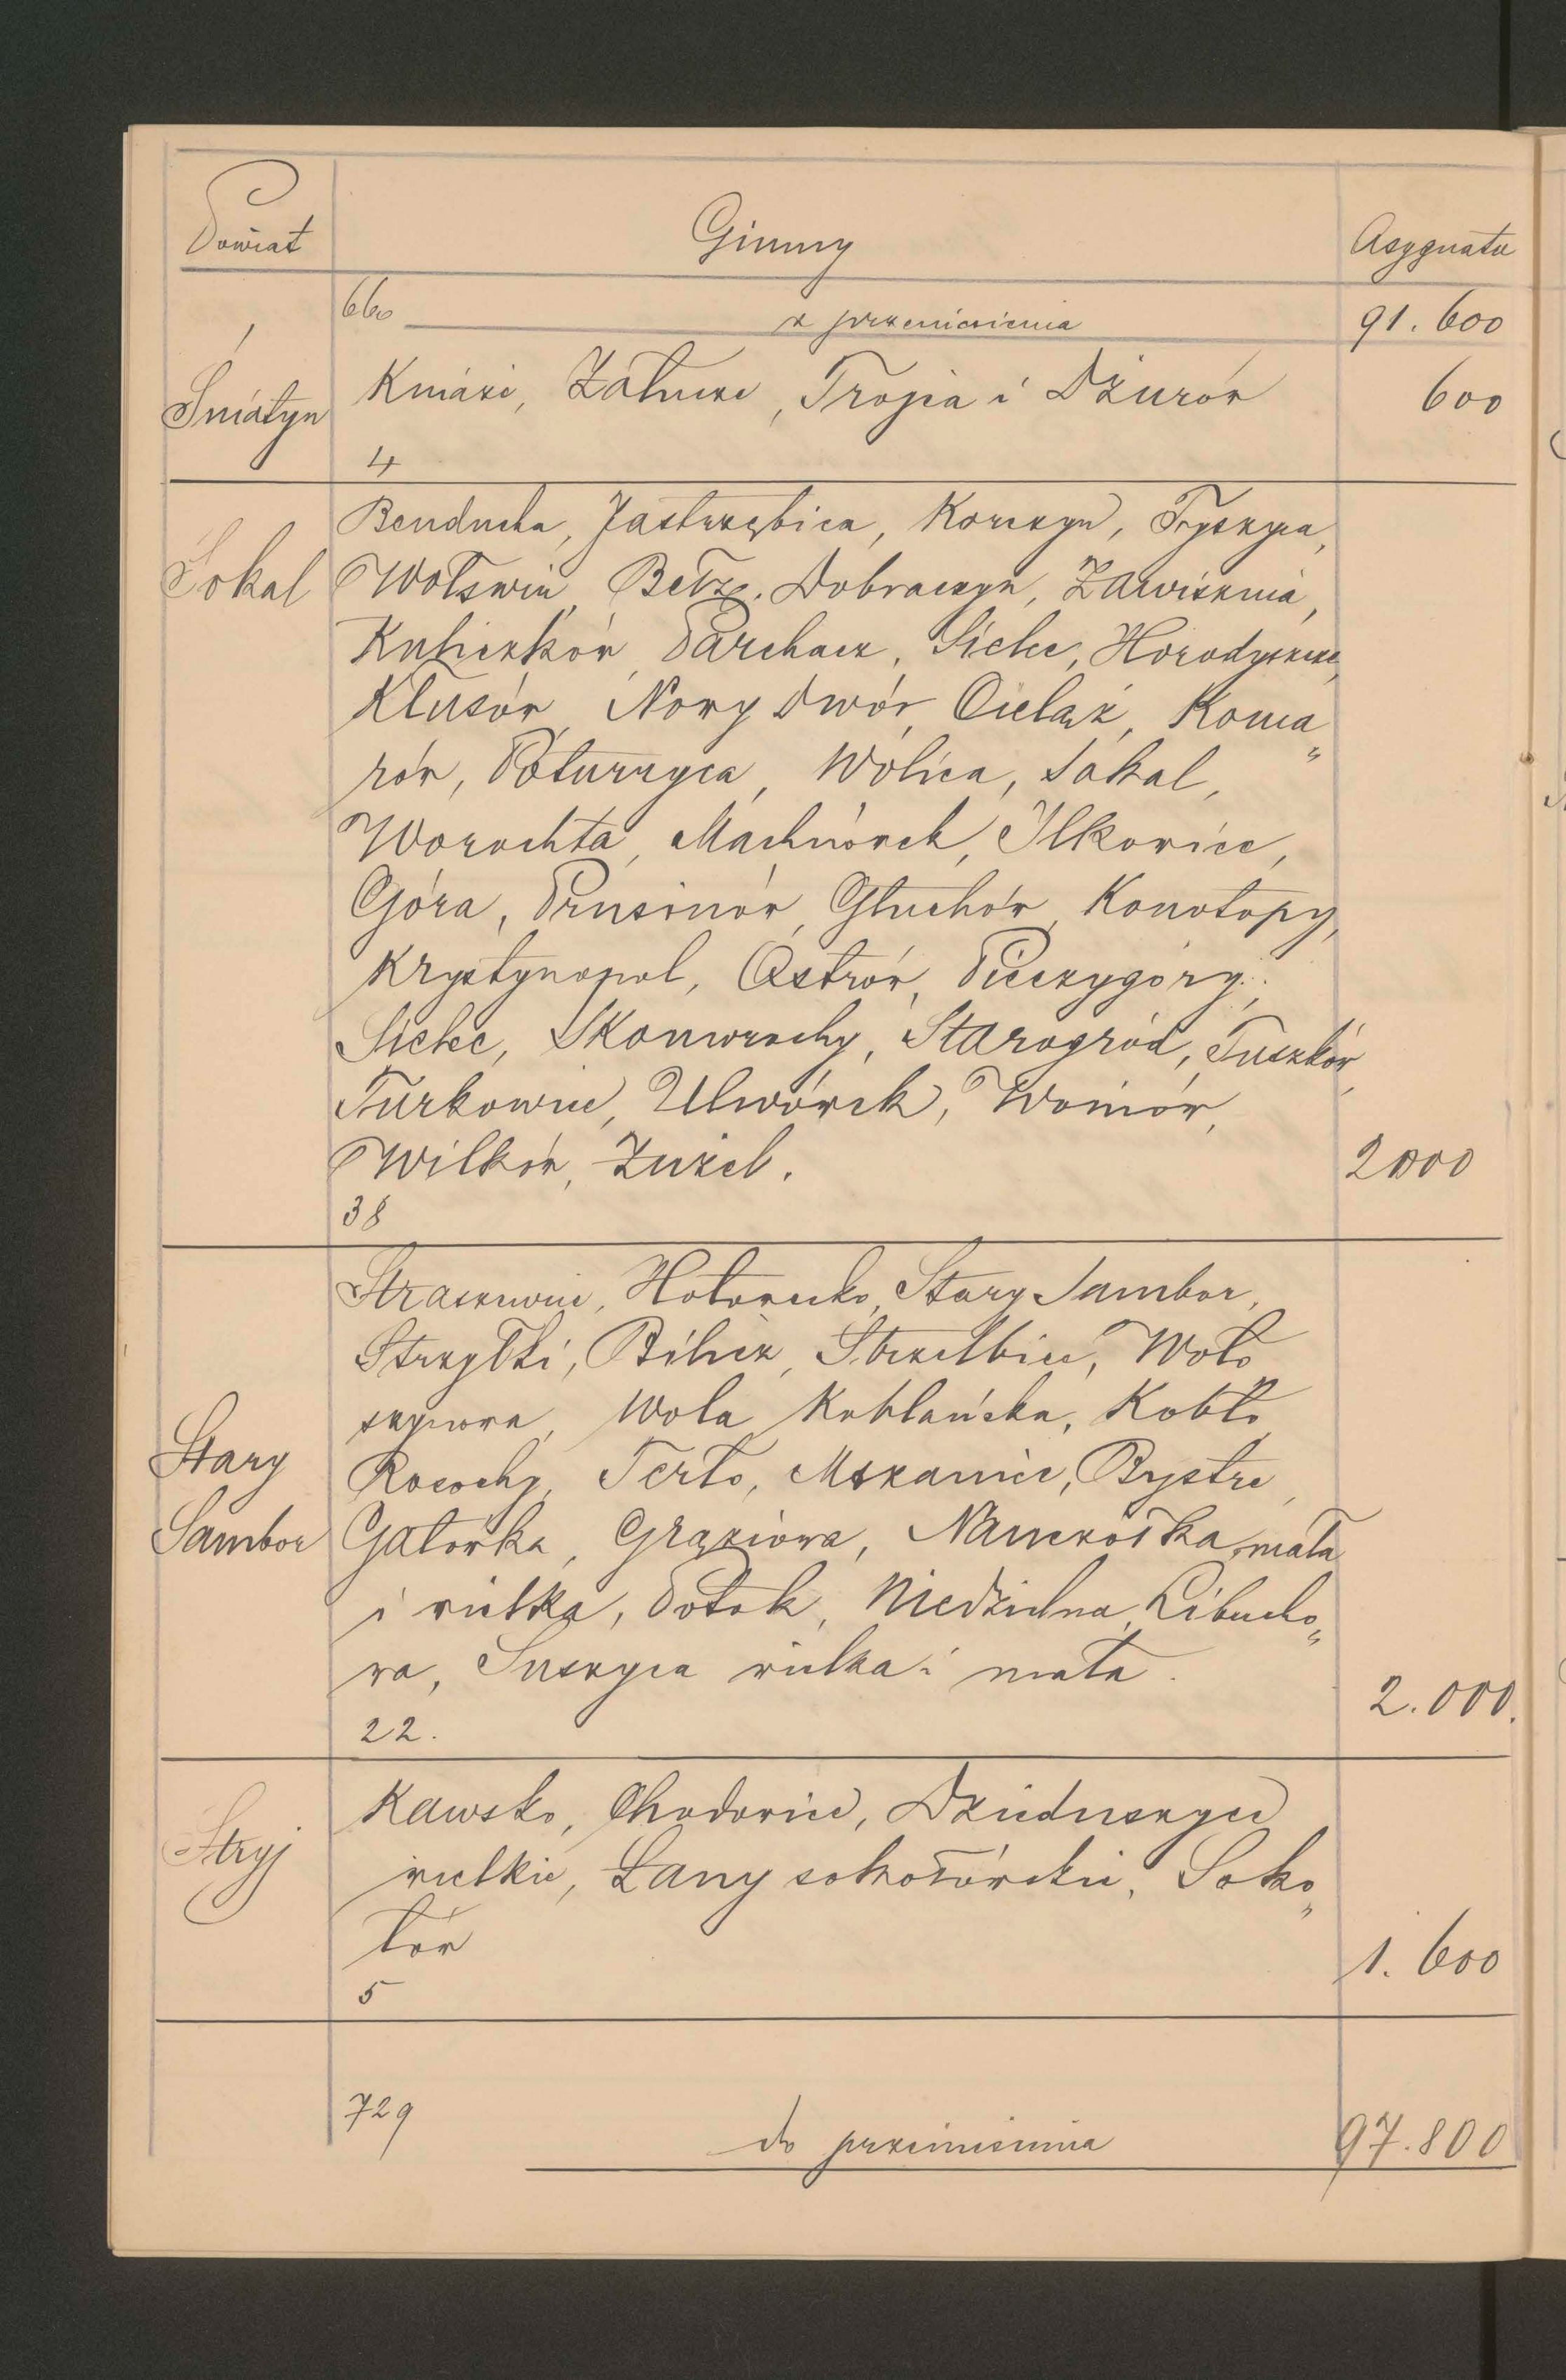 Powiat Gminy Asygnata
660 z przeniesienia 91.600
Śniatyn Kniaże, Załucze, Trojca i Dżurów 600
4
Benducha, Jastrzębica, Korczyn, Tyszyca,
Sokal Wołświn, Bełz, Dobraczyn, Zawisznia,
Kuliczków, Parchacz, Sielec, Horodyszcze,
Kłusów, Nowy dwór, Cieląż, Koma„
rów, Poturzyca, Wolica, Sokal,
Worochta, Machnówek, Ilkowice,
Góra, Prusinów, Głuchów, Konotopy,
Krystynopol, Ostrów, Pieczygóry,
Sielec, Skomorochy, Starogród, Tuszków,
Turkowice, Uhnówek, Woniów,
Wilków, Żużel. 2000
38
Straszewice, Hołowecko, Stary Sambor,
Strzyłki, Bilicz, Strzelbice, Woło
szynowa, Wola Kobłańska, Kobło
Stary Rosochy, Terło, Mszaniec, Bystre,
Sambor Gałówka, Grąziowa, Nanczółka mała
i wielka, Potok, Niedzielna, Libucho„
wa, Suszyca wielka i mała. 2.000.
22.
Kawsko, Chodowice, Dzieduszyce
Stryj wielkie, Łany sokołówskie, Soko„
łów 1.600
5
729 do przeniesienia 97.800